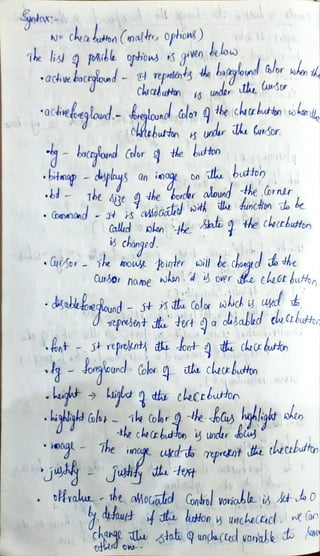 Syntax:-
w= checkbutton (master, options)
The list of possible options is given below
• activebackground - It represents the background color when the
checkbutton is under the cursor.
• activeforeground.- foreground color of the checkbutton when the
checkbutton is under the cursor.
• bg - background color of the button
• bitmap - displays an image on the button
• bd - The size of the border around the corner
• command - It is associated with the function to be
called when the state of the checkbutton
is changed.
• Cursor - The mouse pointer will be changed to the
cursor name when it is over the check button
• disableforeground - It is the color which is used to
represent the text of a disabled checkbutton
• font - It represents the font of the checkbutton
• fg - foreground color of the checkbutton
• height → height of the checkbutton
• highlight color - The color of the focus highlight when
the checkbutton is under focus
• image - The image used to represent the checkbutton
• justify - justify the text
• offvalue - the associated control variable is set to 0
by default if the button is unchecked we can
change the state of unchecked variable to some
other one.